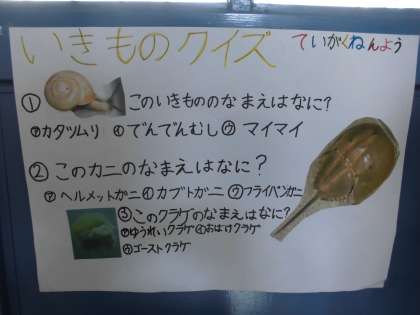 いきものクイズ
ていがくねんよう
①このいきもののなまえはなに?
㋐カタツムリ ㋑でんでんむし ㋒マイマイ
②このカニのなまえはなに?
㋐ヘルメットガニ ㋑カブトガニ ㋒フライパンガニ
③このクラゲのなまえはなに?
㋐ゆうれいクラゲ ㋑おばけクラゲ
㋒ゴーストクラゲ